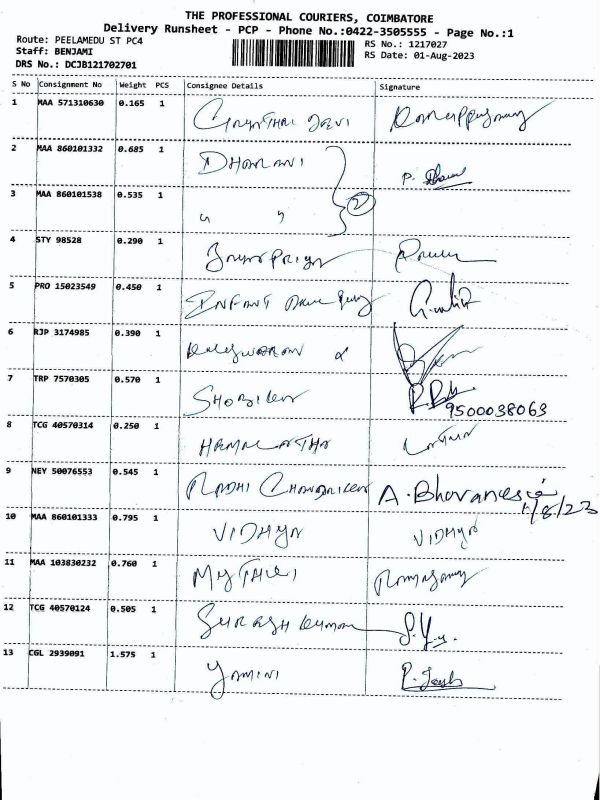 THE PROFESSIONAL COURIERS, COIMBATORE
Delivery Runsheet - PCP - Phone No.:0422-3505555 - Page No.:1
Route: PEELAMEDU ST PC4
RS No.: 1217027
Staff: BENJAMI
RS Date: 01-Aug-2023
DRS No.: DCJB121702701
S No Consignment No Weight PCS Consignee Details Signature
1 MAA 571310630 0.165 1 DEVI
2 MAA 860101332 0.685 1 DHARANI P.
3 MAA 860101538 0.535 1 " " 2
4 STY 98528 0.290 1
5 PRO 15023549 0.450 1 INFANT
6 RJP 3174985 0.390 1
7 TRP 7570305 0.570 1 SHOBIKA
9500038063
8 TCG 40570314 0.250 1 HEMALATHA
9 NEY 50076553 0.545 1 A.
1/8/23
10 MAA 860101333 0.795 1 VIDHYA VIDHYA
11 MAA 103830232 0.760 1 MYTHILI
12 TCG 40570124 0.505 1 SURESH KUMAR
13 CGL 2939091 1.575 1 YAMINI